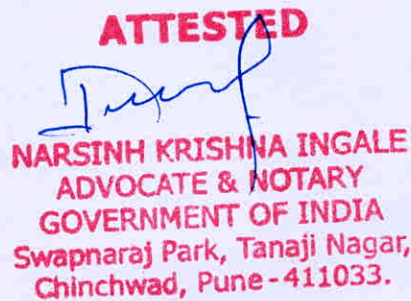 ATTESTED
NARSINH KRISHNA INGALE
ADVOCATE & NOTARY
GOVERNMENT OF INDIA
Swapnaraj Park, Tanaji Nagar,
Chinchwad, Pune-411033.